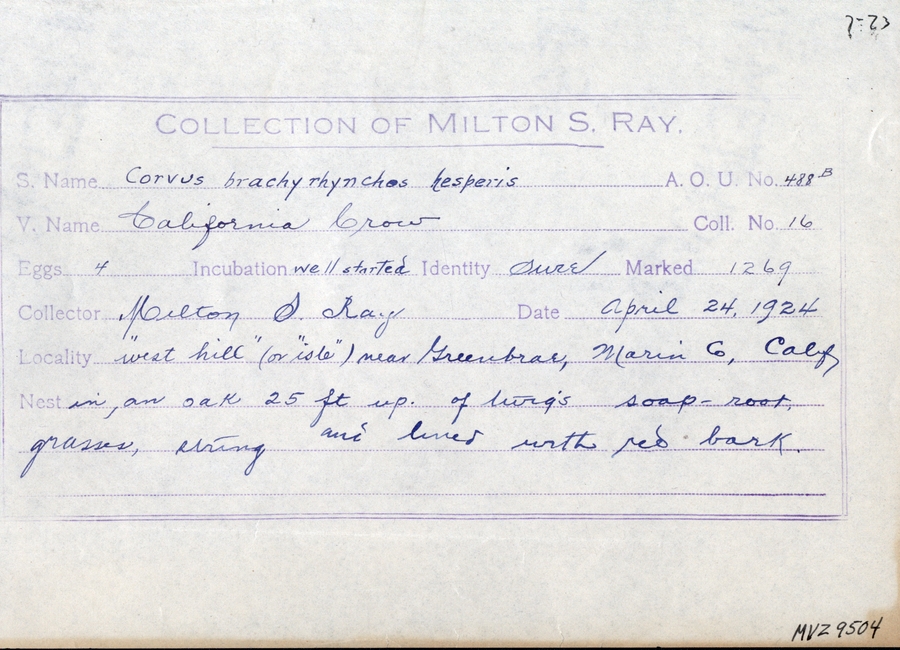 7-23
COLLECTION OF MILTON S. RAY.
S. Name Corvus brachyrhynchos hesperis A. O. U. No. 488 B
V. Name California Crow Coll. No. 16
Eggs 4 Incubation well started Identity sure Marked 1269
Collector Milton S. Ray Date April 24, 1924
Locality "west hill" (or "isle") near Greenbrae, Marin Co, Calif
Nest in, an oak 25 ft up. of twigs soap-root,
grasses, string and lined with red bark.
MVZ 9504